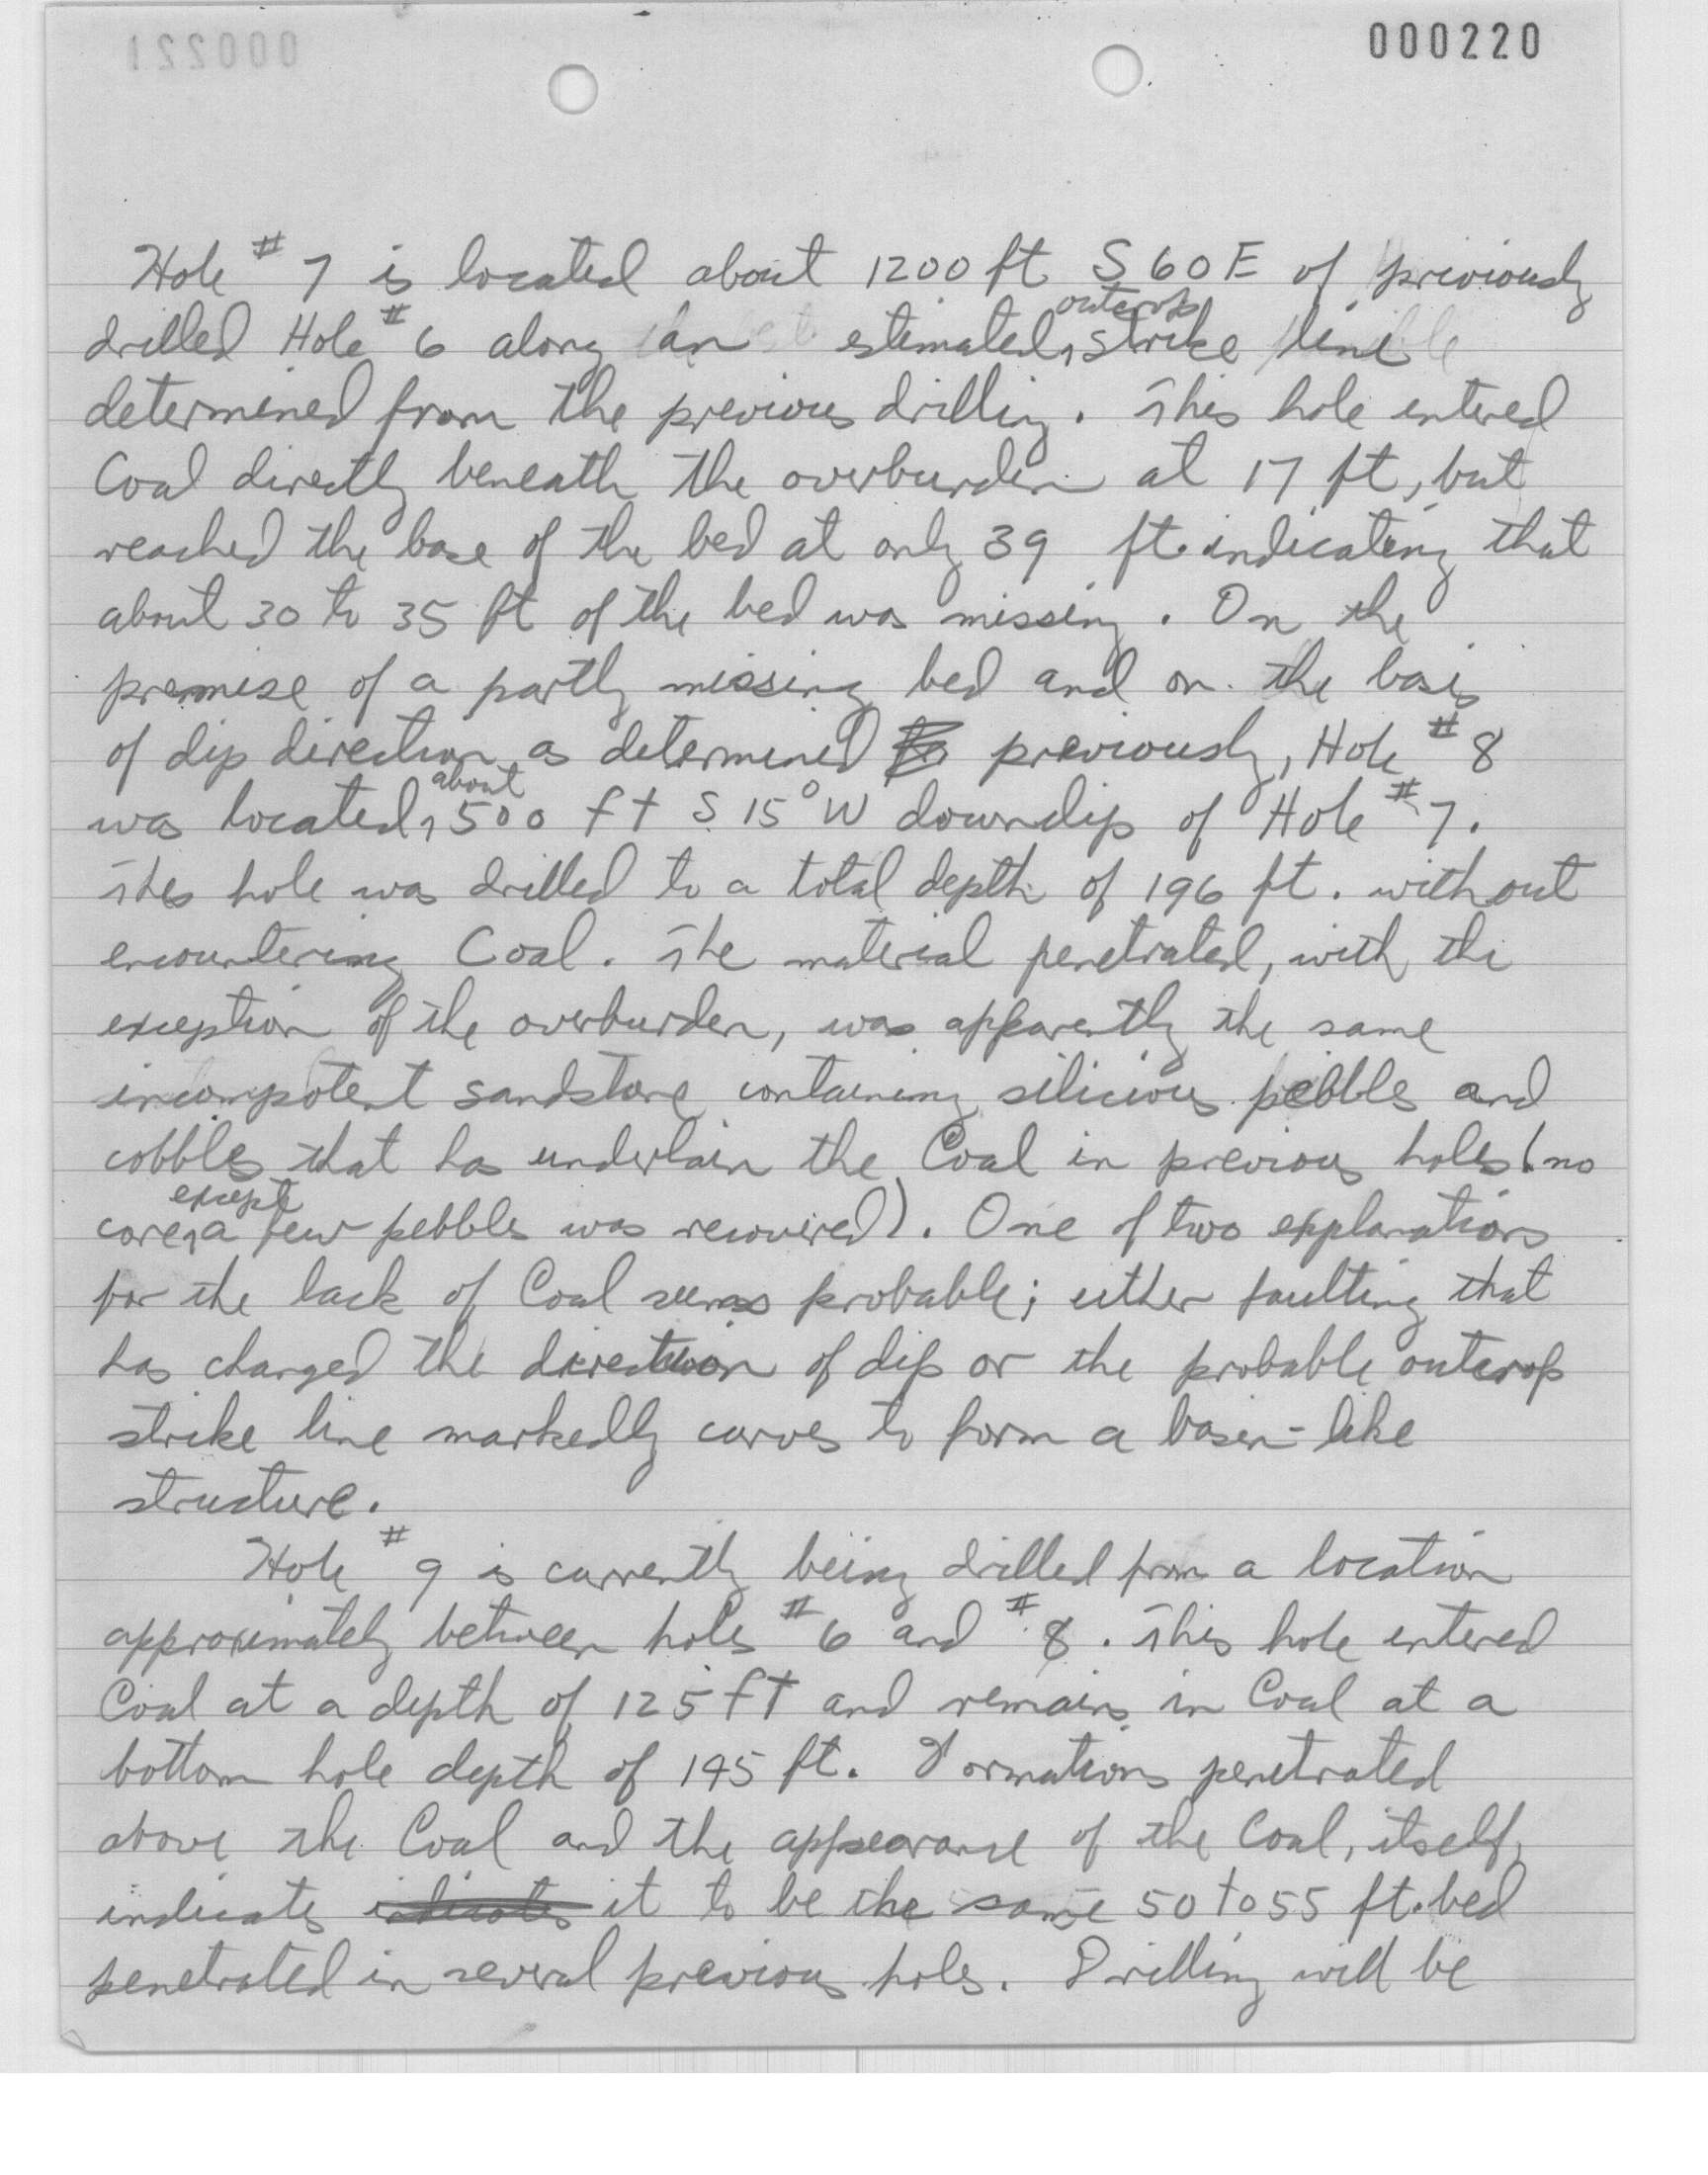 000221
000220
Hole # 7 is located about 1200 ft S 60 E of previously
drilled Hole # 6 along an estimated outcrop strike line
determined from the previous drilling. This hole entered
Coal directly beneath the overburden at 17 ft, but
reached the base of the bed at only 39 ft. indicating that
about 30 to 35 ft of the bed was missing. On the
premise of a partly missing bed and on the basis
of dip direction as determined previously, Hole # 8
was located about 500 ft S 15° W downdip of Hole # 7.
This hole was drilled to a total depth of 196 ft. without
encountering Coal. The material penetrated, with the
exception of the overburden, was apparently the same
incompotent sandstone containing silicious pebbles and
cobbles that has underlain the Coal in previous holes (no
core, except a few pebbles was recovered). One of two explanations
for the lack of Coal seems probable; either faulting that
has changed the direction of dip or the probable outcrop
strike line markedly curves to form a basin-like
structure.
Hole # 9 is currently being drilled from a location
approximately between holes # 6 and # 8. This hole entered
Coal at a depth of 125 ft and remains in Coal at a
bottom hole depth of 145 ft. Formations penetrated
above the Coal and the appearance of the Coal, itself,
indicates it to be the same 50 to 55 ft. bed
penetrated in several previous holes. Drilling will be